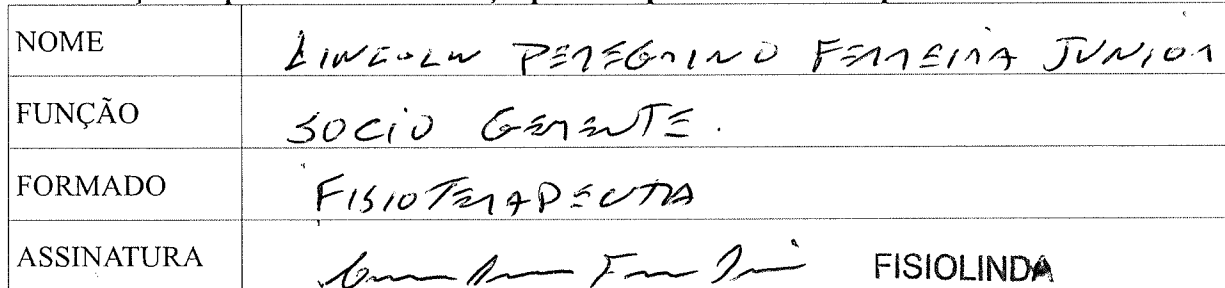 NOME LINCOLN PEREGRINO FERREIRA JUNIOR
FUNÇÃO SOCIO GERENTE.
FORMADO FISIOTERAPEUTA
ASSINATURA FISIOLINDA